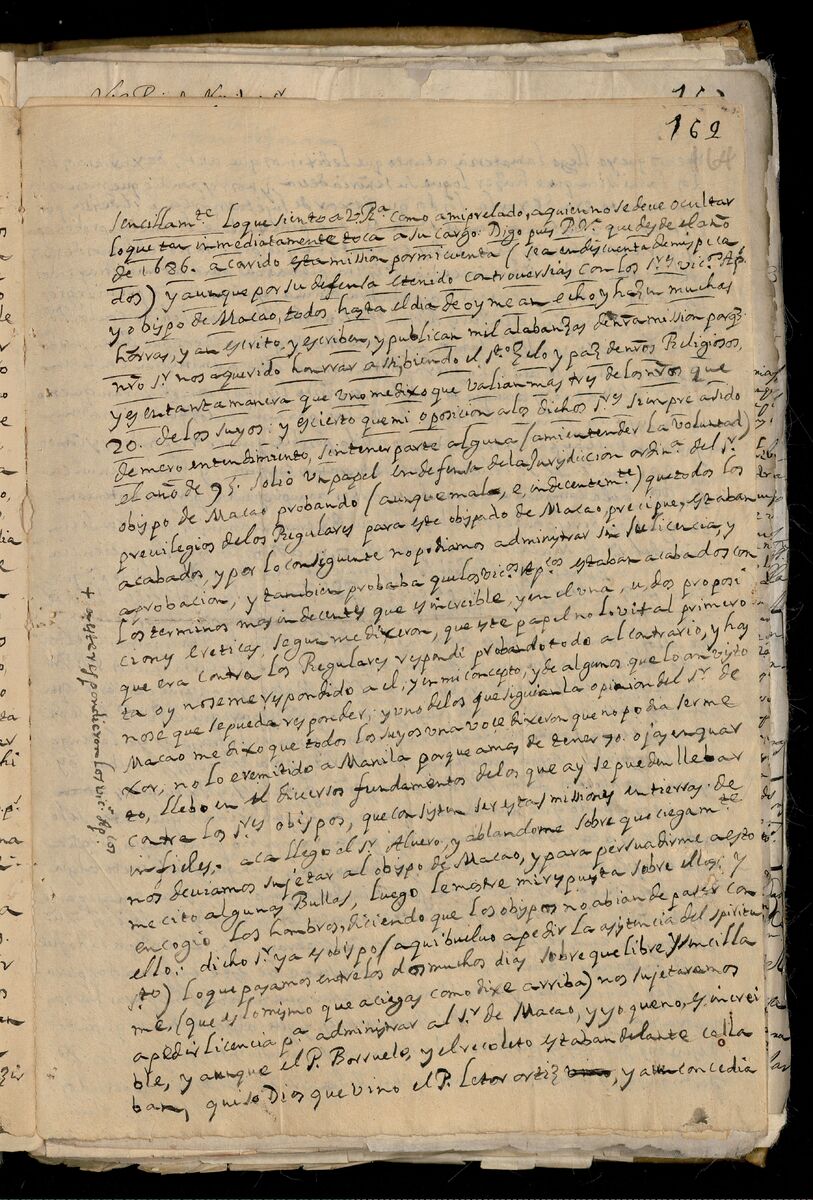 162
sencillam.te lo que siento a V. R.a como a mi prelado, a quien no se deve ocultar
lo que tan immediatamente toca a su cargo. Digo pues P. N.o que desde el año
de 1686. a corrido esta mission por mi cuenta (sea en discuenta de mis peca
dos) y aunque por su defensa e tenido controversias con los s.res vic.os Ap.
y obispo de Macao, todos hasta el dia de oy me an echo y hazen muchas
honrras, y an escrito, y escriben, y publican mil alabanzas de nra mission porq
nro s.r nos a querido honrrar a el s.to zelo y paz de nros Religiosos,
y es en tanta manera que uno me dixo que valian mas tres de los nros que
20. de los suyos: y es cierto que mi oposicion a los dichos s.res siempre a sido
de mero entendimiento, sin tener parte alguna (a mi entender la voluntad)
el año de 93. salio un papel en defensa de la Jurisdiccion ordin.a del s.r
obispo de Macao probando (aunque male, e, indecentem.te) que todos los
previlegios de los Regulares para este obispado de Macao, precipue, estaban
acabados, y por lo consiguente no podiamos administrar sin su licencia, y
aprobacion, y tambien probaba que los vic.os Ap.cos estaban acabados con
los terminos mas indecentes que es increible, y en el una, u, dos proposi
ciones ereticas, segun me dixeron, que este papel no lo vi + al primero
que era contra los Regulares respondi probando todo al contrario, y has
ta oy no se me respondido a el, y en mi concepto, y de algunos que lo an visto
no se que se pueda responder; y uno de los que siguian la opinion del s.r de
Macao me dixo que todos los suyos una voce dixeron que no podia ser me
xor, no lo e remitido a Manila porque a mas de tener 70. ojas en quar
to, llebo en el diversos fundamentos de los que ay se pueden llebar
contra los s.res obispos, que consisten ser estas missiones en tierras de
infieles. aca llego el s.r Aluero, y ablandome sobre que ciegam.te
nos deviamos sujetar al obispo de Macao, y para persuadirme a esto
me cito algunas Bullas, luego le mostre mi respuesta sobre ellas; y
encogio los hombros, diciendo que los obispos no abian de pasar con
ello: dicho s.r ya es obispo (aqui buelvo a pedir la asistencia del spiritu
s.to) lo que pasamos entre los dos muchos dias sobre que libre, y sencilla
me, (que es lo mismo que a ciegas como dixe arriba) nos sujetaremos
a pedir licencia p.a administrar al s.r de Macao, y yo que no, es increi
ble, y aunque el P. Borruelo, y el recoleto estaban delante calla
ban, quiso Dios que vino el P. Letor ortiz, y aun concedia
+ a este respondieron los vic.os Ap.cos